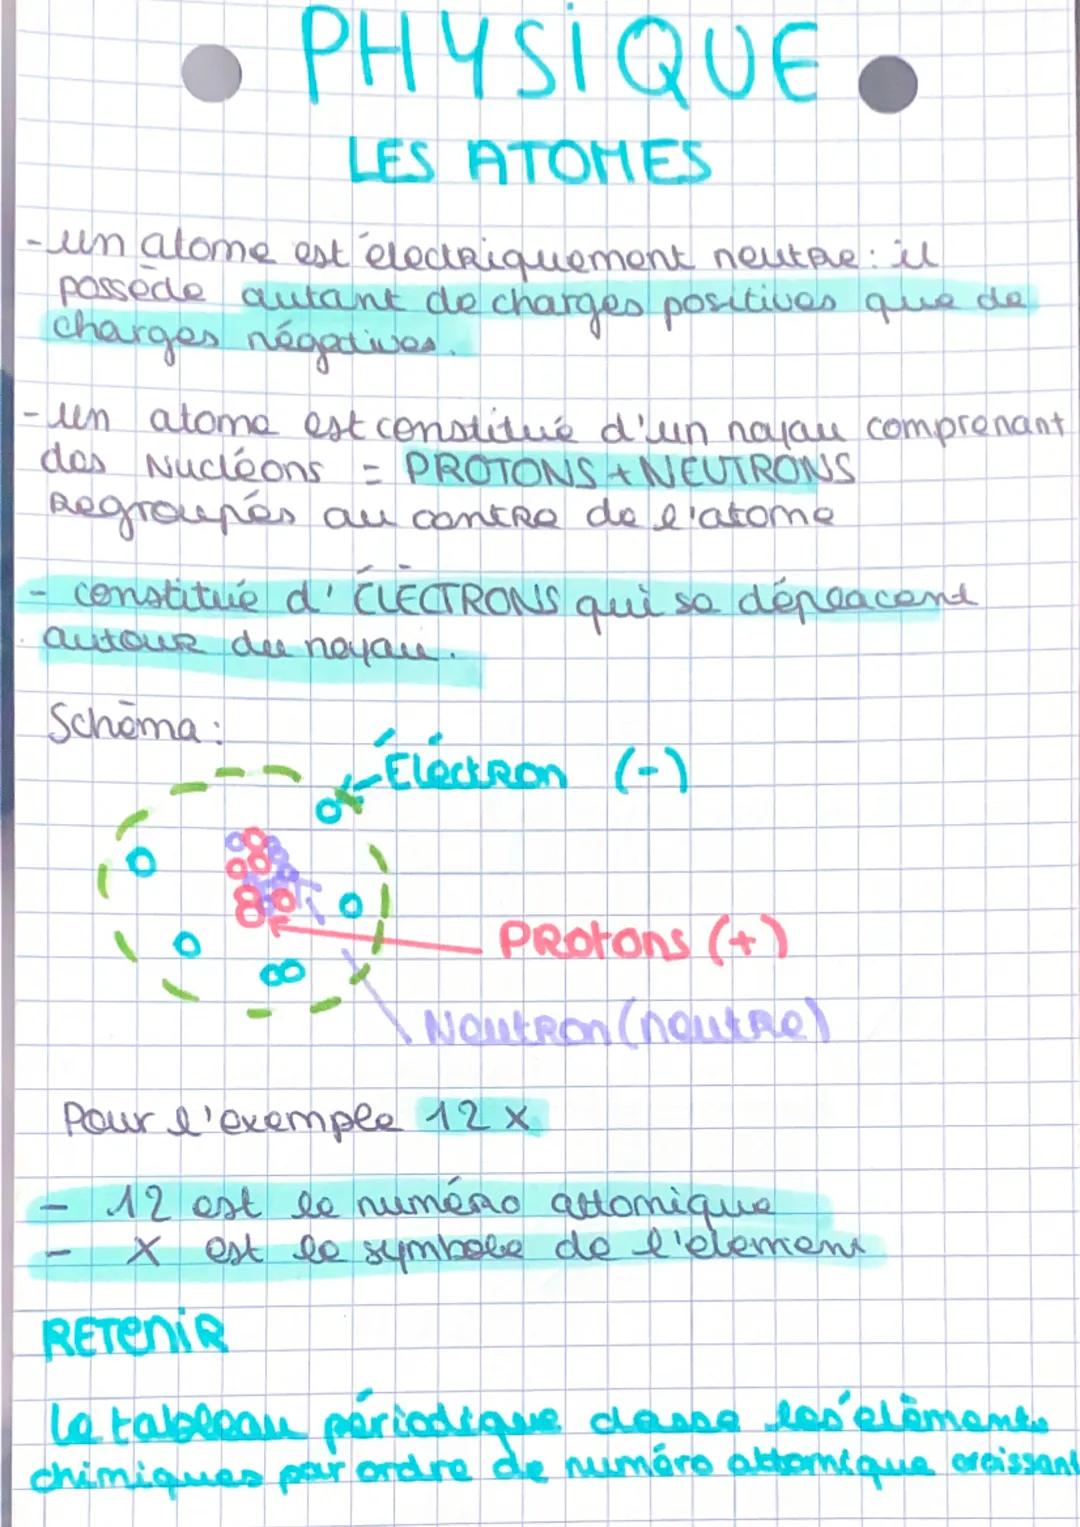 PHYSIQUE
LES ATOMES
- un atome est électriquement neutre : il
possède autant de charges positives que de
charges négatives.
- un atome est constitué d'un noyau comprenant
des Nucléons = PROTONS + NEUTRONS
Regroupés au centre de l'atome
- constitué d'ÉLÉCTRONS qui se déplacent
autour du noyau.
Schéma :
Éléctron (-)
PROtons (+)
Neutron (neutre)
Pour l'exemple 12 X
- 12 est le numéro attomique
- X est le symbole de l'élement
RETENIR
Le tableau périodique classe les élèments
chimiques par ordre de numéro attomique croissant